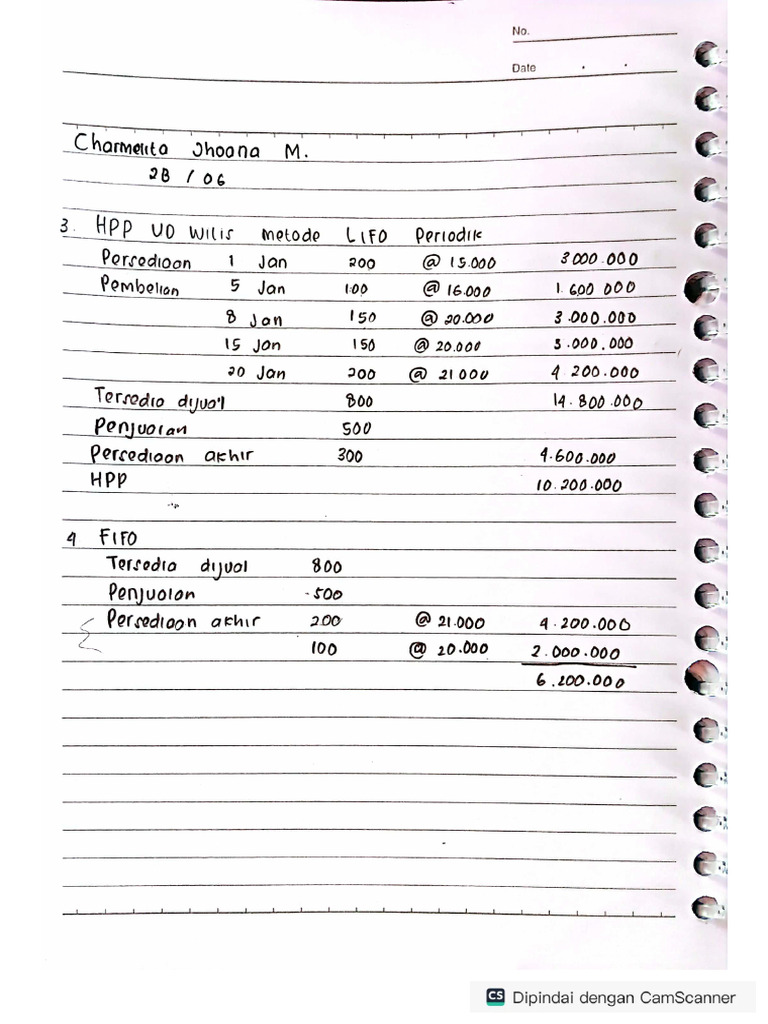 No.
Date
Charmelita Jhoana M.
2B / 06
3. HPP UD Wilis metode LIFO Periodik
Persediaan 1 Jan 200 @ 15.000 3.000.000
Pembelian 5 Jan 100 @ 16.000 1.600.000
8 Jan 150 @ 20.000 3.000.000
15 Jan 150 @ 20.000 3.000.000
20 Jan 200 @ 21000 4.200.000
Tersedia dijual 800 14.800.000
Penjualan 500
Persediaan akhir 300 4.600.000
HPP 10.200.000
4 FIFO
Tersedia dijual 800
Penjualan -500
Persediaan akhir 200 @ 21.000 4.200.000
100 @ 20.000 2.000.000
6.200.000
CS Dipindai dengan CamScanner